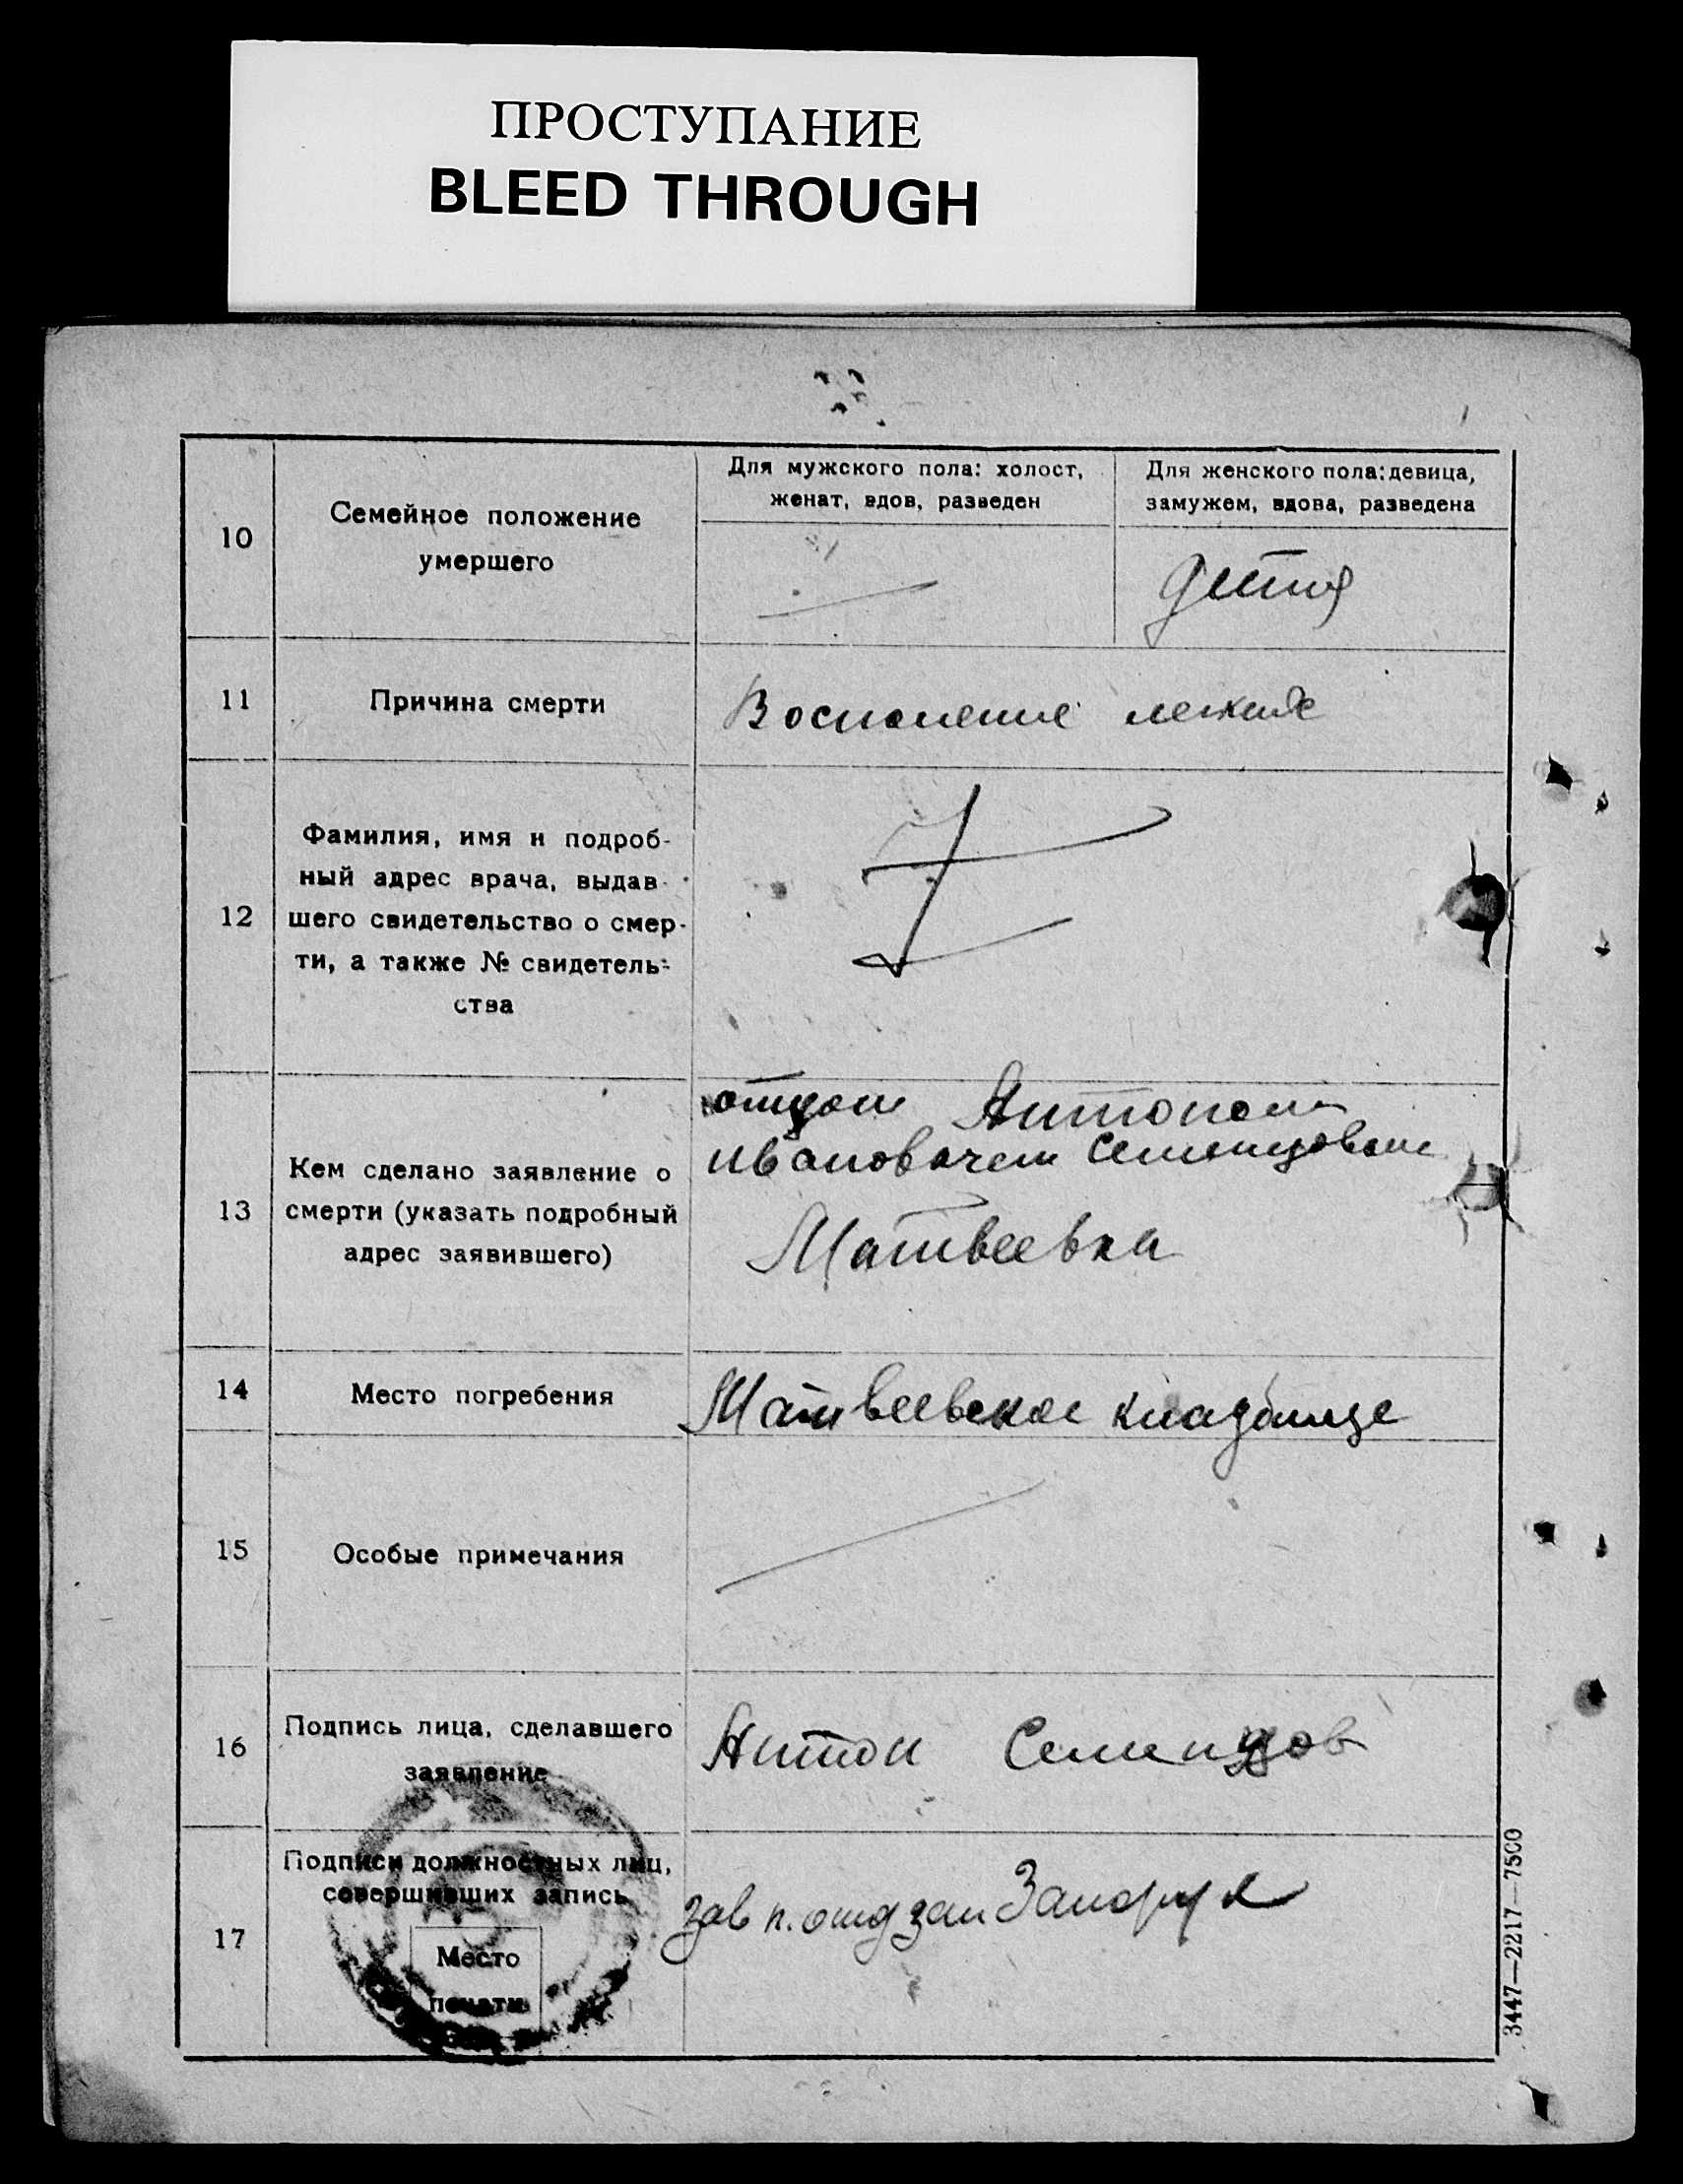 ПРОСТУПАНИЕ
BLEED THROUGH
10
Семейное положение
умершего
Для мужского пола: холост,
женат, вдов, разведен
Для женского пола: девица,
замужем, вдова, разведена
дитя
11
Причина смерти
Воспаление легких
12
Фамилия, имя и подроб-
ный адрес врача, выдав-
шего свидетельство о смер-
ти, а также № свидетель-
ства
13
Кем сделано заявление о
смерти (указать подробный
адрес заявившего)
отцом Антоном
ивановичем Семенцовым
Матвеевка
14
Место погребения
Матвеевское кладбище
15
Особые примечания
16
Подпись лица, сделавшего
заявление
Антон Семенцов
17
Подписи должностных лиц,
совершивших запись
Место
печати
зав п.
3447—2217—7500